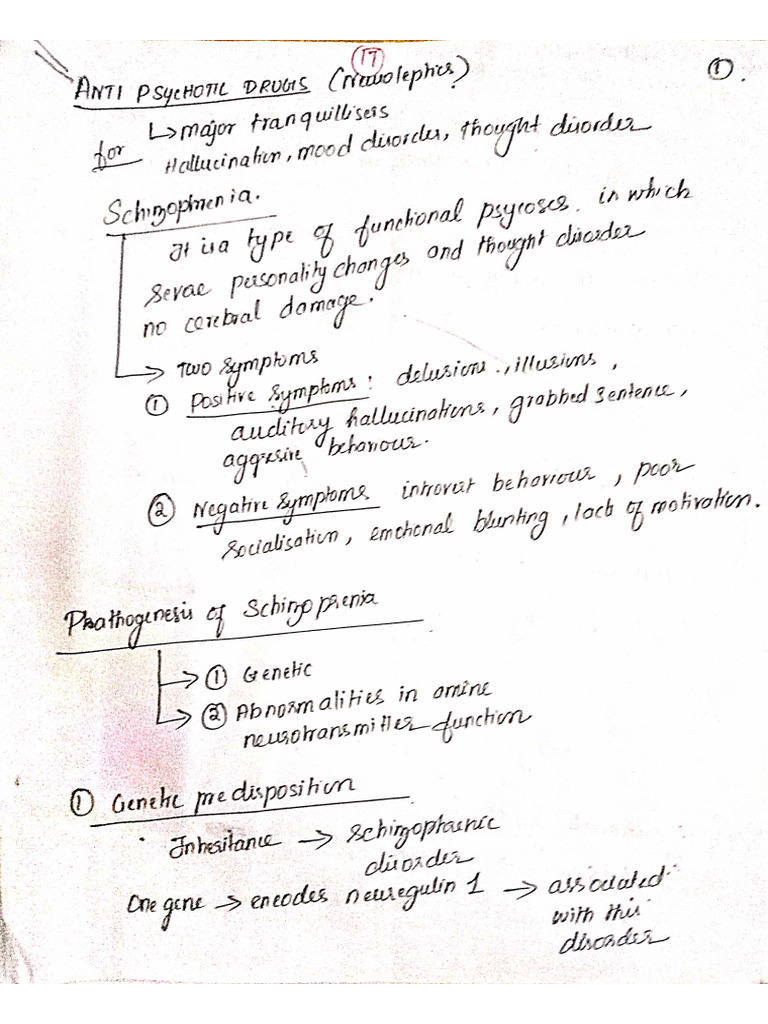 17
1.
ANTI PSYCHOTIC DRUGS (Neuroleptics)
↳ major tranquillisers
for Hallucination, mood disorder, thought disorder
Schizophrenia.
It is a type of functional psycoses. in which
Severe personality changes and thought disorder
no cerebral damage.
→ Two symptoms
① Positive Symptoms: delusions., illusions,
auditory hallucinations, grabbed sentence,
aggresive behaviour.
② Negative Symptoms introvert behaviour, poor
Socialisation, emotional blunting, lack of motivation.
Pathogenesis of Schizophrenia
→ ① Genetic
→ ② Abnormalities in amine
neurotransmitter function
① Genetic predisposition
Inheritance → Schizophrenic
disorder
One gene → encodes neuregulin 1 → associated
with this
disorder